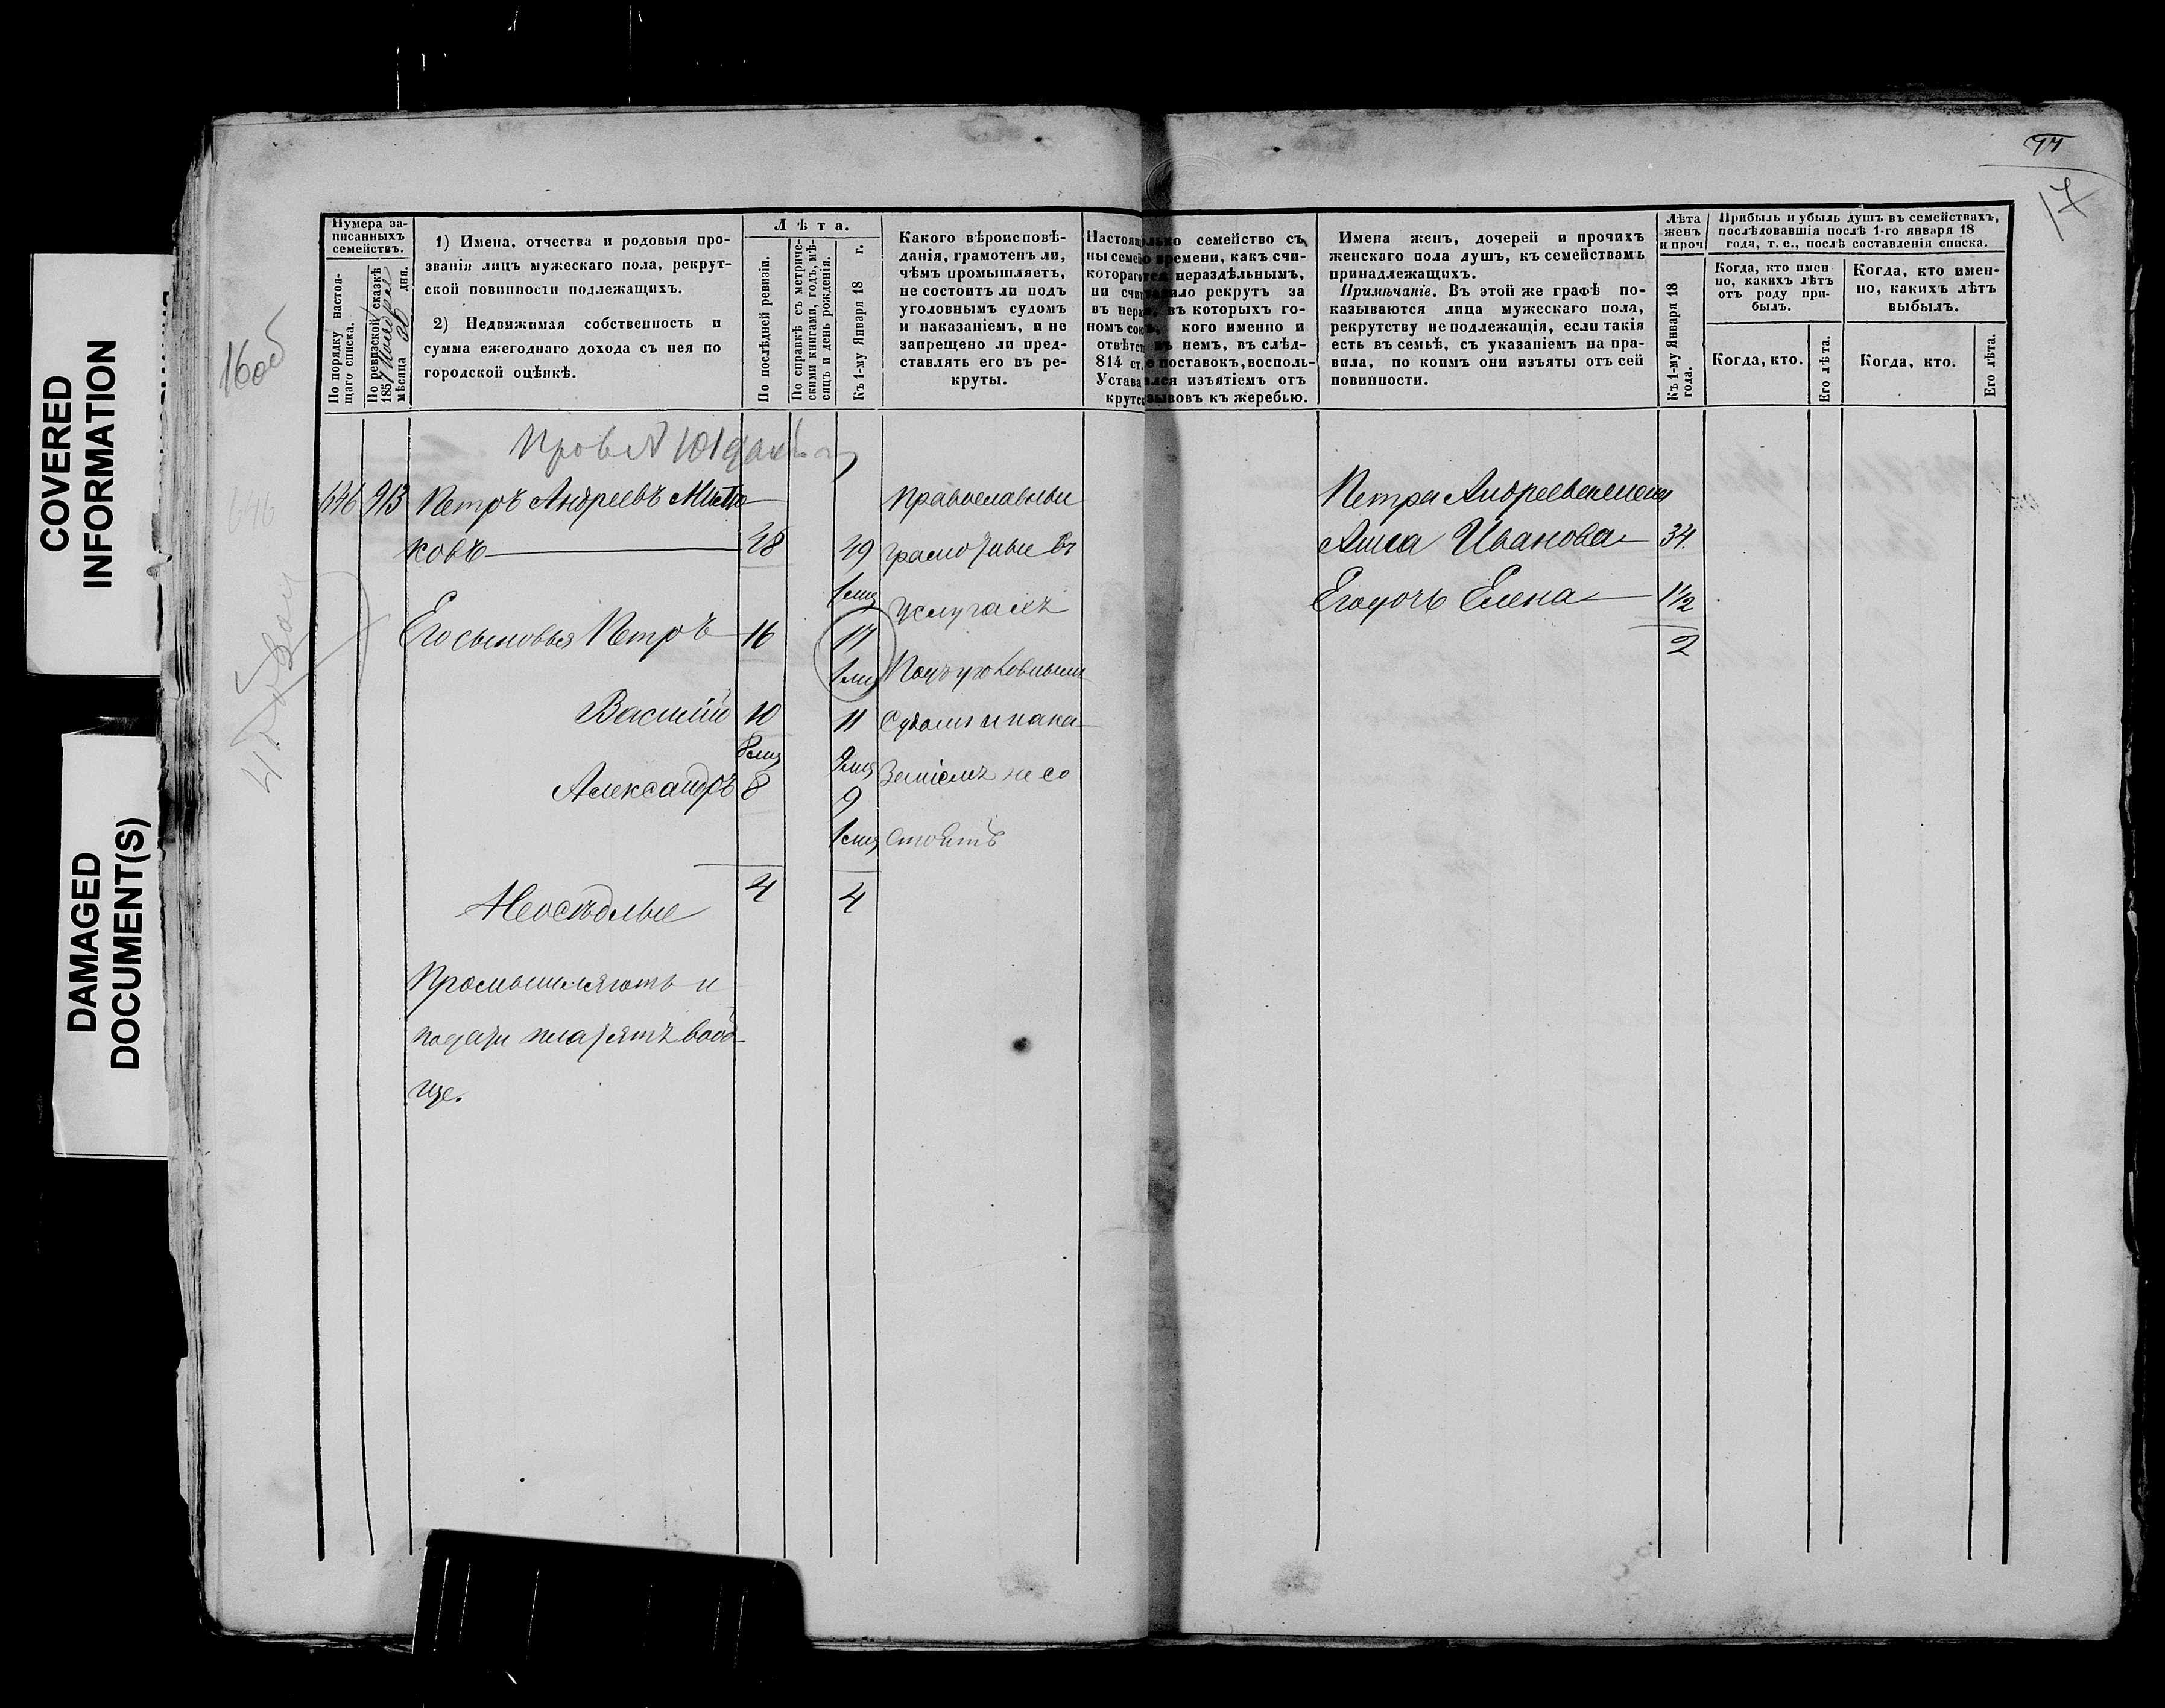 COVERED
INFORMATION
DAMAGED
DOCUMENT(S)
16 об
17
Нумера записанныхъ семействъ.
По порядку настоящаго списка.
По ревизской сказкѣ 185 мѣсяца 30 дня.
1) Имена, отчества и родовыя про-
званія лицъ мужескаго пола, рекрут-
ской повинности подлежащихъ.
2) Недвижимая собственность и
сумма ежегоднаго дохода съ нея по
городской оцѣнкѣ.
Лѣта.
По послѣдней ревизіи.
По справкѣ съ метриче-
скими книгами, годъ, мѣ-
сяцъ и день рожденія.
Къ 1-му Января 18 г.
Какого вѣроисповѣ-
данія, грамотенъ ли,
чѣмъ промышляетъ,
не состоитъ ли подъ
уголовнымъ судомъ
и наказаніемъ, и не
запрещено ли пред-
ставлять его въ ре-
круты.
семейство съ
времени, какъ счи-
нераздѣльнымъ,
рекрутъ за
въ которыхъ го-
кого именно и
немъ, въ слѣд-
814 ст. поставокъ, восполь-
Устава изъятіемъ отъ
къ жеребью.
Имена женъ, дочерей и прочихъ
женскаго пола душъ, къ семействамъ
принадлежащихъ.
Примѣчаніе. Въ этой же графѣ по-
казываются лица мужескаго пола,
рекрутству не подлежащія, если такія
есть въ семьѣ, съ указаніемъ на пра-
вила, по коимъ они изъяты отъ сей
повинности.
Лѣта
женъ
и проч
Къ 1-му Января 18
года.
Прибыль и убыль душъ въ семействахъ,
послѣдовавшія послѣ 1-го января 18
года, т. е., послѣ составленія списка.
Когда, кто имен-
но, какихъ лѣтъ
отъ роду при-
былъ.
Когда, кто имен-
но, какихъ лѣтъ
выбылъ.
Когда, кто.
Его лѣта.
Когда, кто.
Его лѣта.
646 913 Петръ Андреевъ
ковъ 48 49
1 мц
Его сыновья Петръ 16 17
1 мц
Василій 10 11
8 мц 9 мц
Александръ 8 9
1 мц
4 4
Неосѣдлые
Промышляютъ и
подати платятъ вооб-
ще.
Православные
грамотные въ
услугахъ
Подъ уголовнымъ
судомъ и нака-
заніемъ не со
стоятъ
Петра Андреева жена
Анна Иванова 34.
Его дочь Елена 1½
2